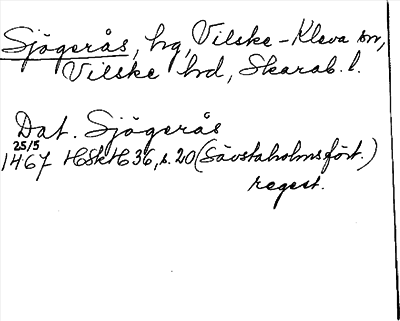 Sjögerås, hg, Vilske-Kleva sn,
Vilske hrd, Skarab. l.
Dat. Sjögerås
25/5
1467 HSkH 36, s. 20 (Sävstaholmsfört.)
regest.